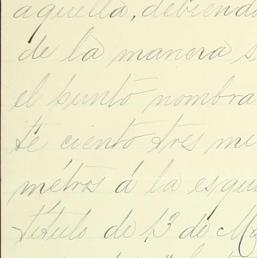 aquella, debiendo
de la manera s
el punto nombra
te ciento tres mi
métros á la esqui
título de 13 de